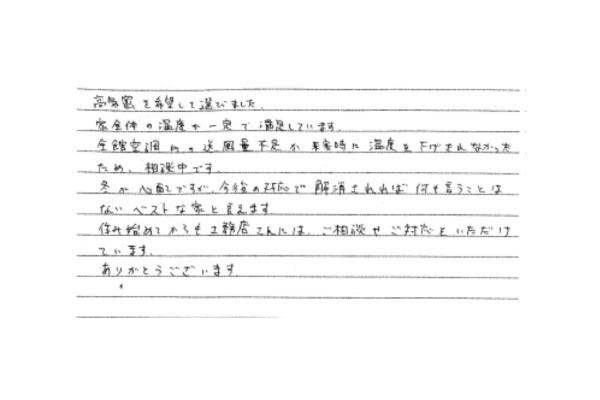 高気密を希望して選びました。
家全体の温度が一定で満足しています。
全館空調内の送風量不足か 来客時に温度を下げきれなかった
ため、相談中です。
冬が心配ですが、今後の対応で解消されれば何も言うことは
ないベストな家と言えます
住み始めてからも工務店さんには、ご相談やご対応をいただけ
ています。
ありがとうございます。